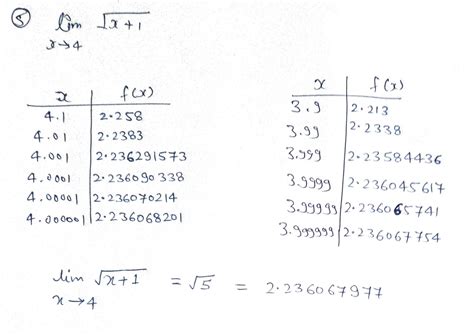 ⑧ lim √x+1
x→4
x | f(x)
4.1 | 2.258
4.01 | 2.2383
4.001 | 2.236291573
4.0001 | 2.236090338
4.00001 | 2.236070214
4.000001 | 2.236068201
x | f(x)
3.9 | 2.213
3.99 | 2.2338
3.999 | 2.23584436
3.9999 | 2.236045617
3.99999 | 2.236065741
3.999999 | 2.236067754
lim √x+1 = √5 = 2.236067977
x→4